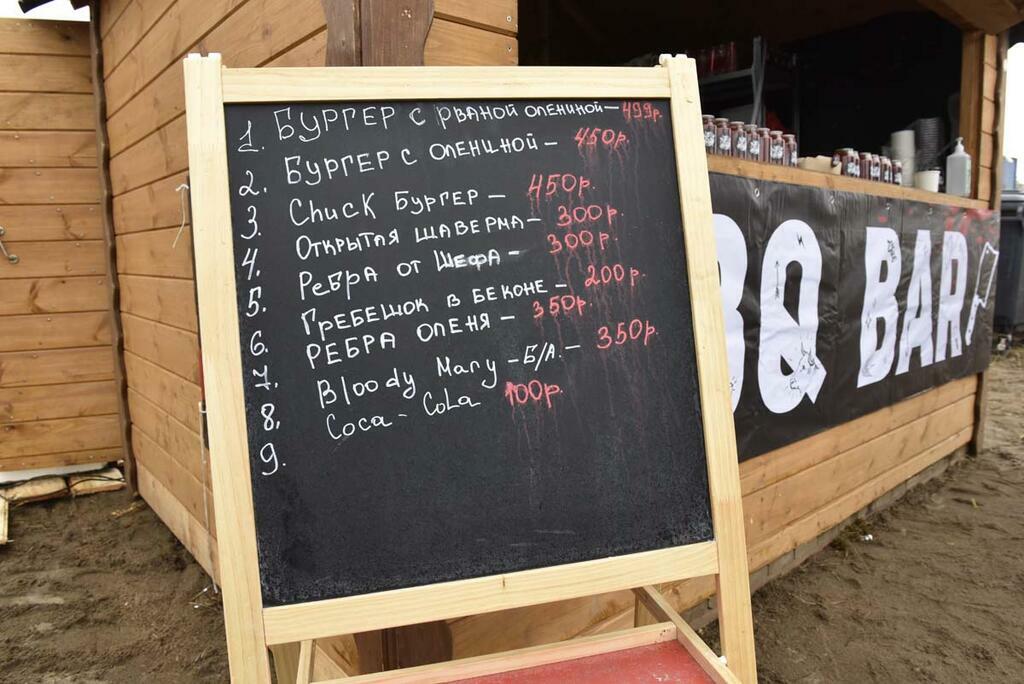 1. БУРГЕР С РВАНОЙ ОЛЕНИНОЙ — 499р.
2. БУРГЕР С ОЛЕНИНОЙ — 450р.
3. Chuck БУРГЕР — 450р.
4. ОТКРЫТАЯ ШАВЕРМА — 300р.
5. РЕБРА ОТ ШЕФА — 300р.
6. ГРЕБЕШОК В БЕКОНЕ — 200р.
7. РЕБРА ОЛЕНЯ — 350р.
8. Bloody Mary - Б/А. — 350р.
9. Coca - Cola 100р.
BQ BAR